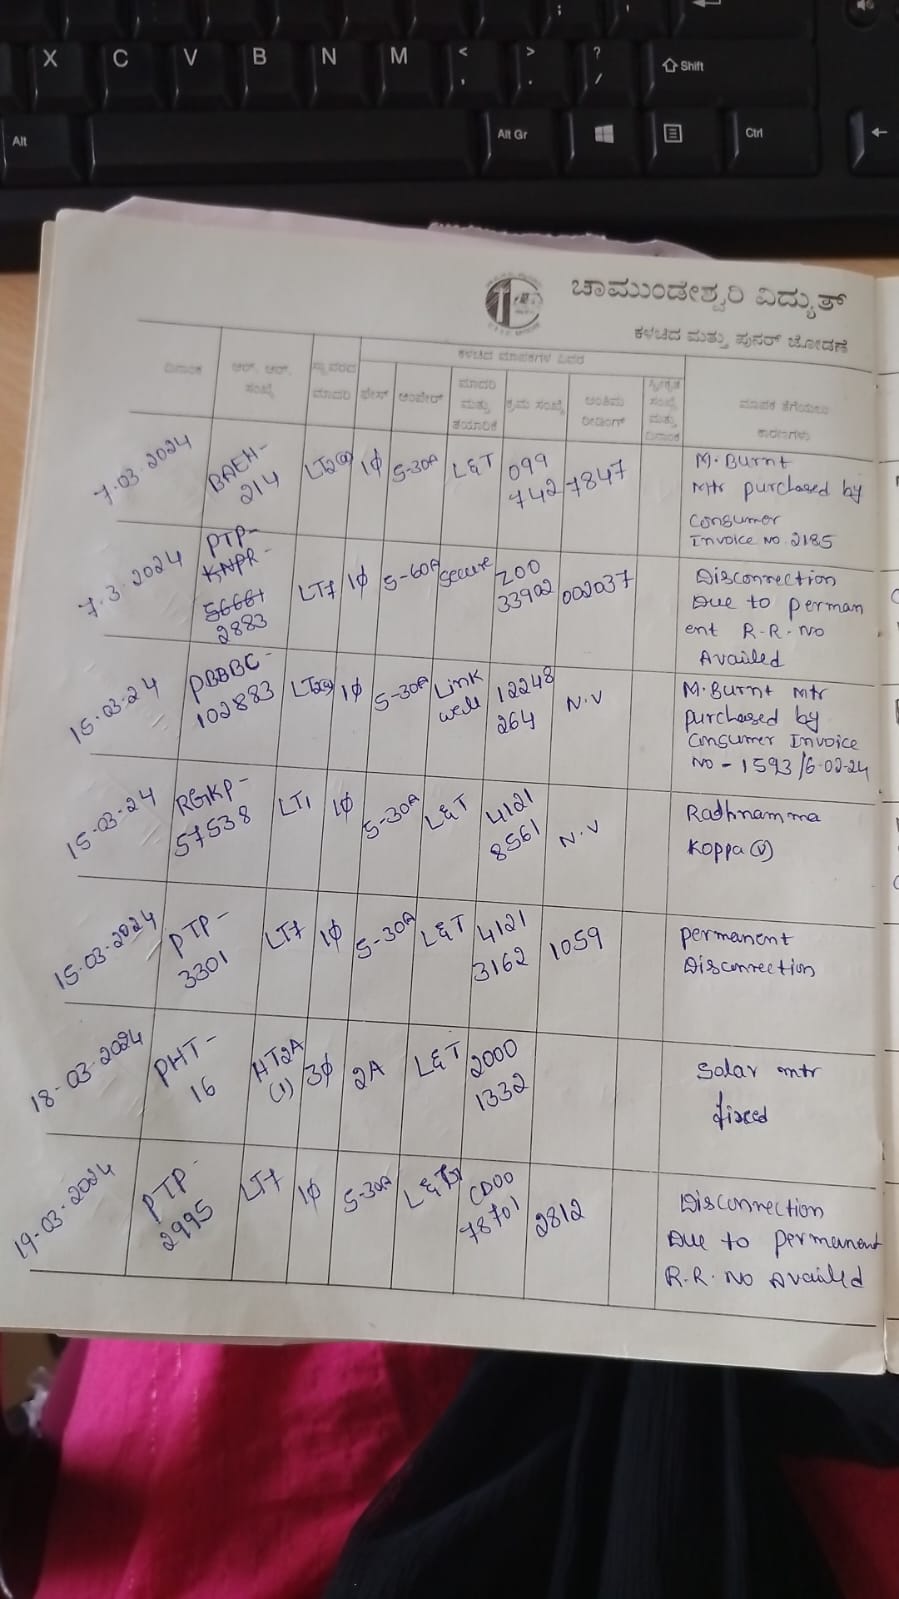 X C V B N M < , > . ? / Shift
Alt Alt Gr Ctrl
ಚಾಮುಂಡೇಶ್ವರಿ ವಿದ್ಯುತ್
ಕಳಚಿದ ಮತ್ತು ಪುನರ್ ಜೋಡಣೆ
ಕಳಚಿದ ಮಾಪಕಗಳ ವಿವರ
ದಿನಾಂಕ ಆರ್. ಆರ್. ಸಂಖ್ಯೆ ಸ್ಥಾವರದ ಮಾದರಿ ಫೇಸ್ ಆಂಪೇರ್ ಮಾದರಿ ಮತ್ತು ತಯಾರಿಕೆ ಕ್ರಮ ಸಂಖ್ಯೆ ಅಂತಿಮ ರೀಡಿಂಗ್ ಸಂಖ್ಯೆ ಮತ್ತು ದಿನಾಂಕ ಮಾಪಕ ತೆಗೆಯಲು ಕಾರಣಗಳು
7.03.2024 BAEH- LT2(a) 1ϕ 5-30A L&T 099 7847 M.Burnt
214 742 Mtr purchased by
consumer
Invoice No.2185
7.3.2024 PTP- LT7 1ϕ 5-60A secure 200 002037 Disconnection
KNPR- 33902 Due to perman
56661 ent R.R.No
2883 Availed
15.03.24 PBBBC- LT2(a) 1ϕ 5-30A Link 12248 N.V M.Burnt mtr
102883 well 264 purchased by
Consumer Invoice
No-1593/6-02-24
15-03-24 RGKP- LT1 1ϕ 5-30A L&T 4121 N.V Radhnamma
57538 8561 Koppa (v)
15-03-2024 PTP- LT7 1ϕ 5-30A L&T 4121 1059 permanent
3301 3162 Disconnection
18-03-2024 PHT- HT2A 3ϕ 2A L&T 2000 Solar mtr
16 (1) 1332 fixed
19-03-2024 PTP- LT7 1ϕ 5-30A L&T CD00 2812 Disconnection
2995 78701 Due to permanent
R.R.No Availed